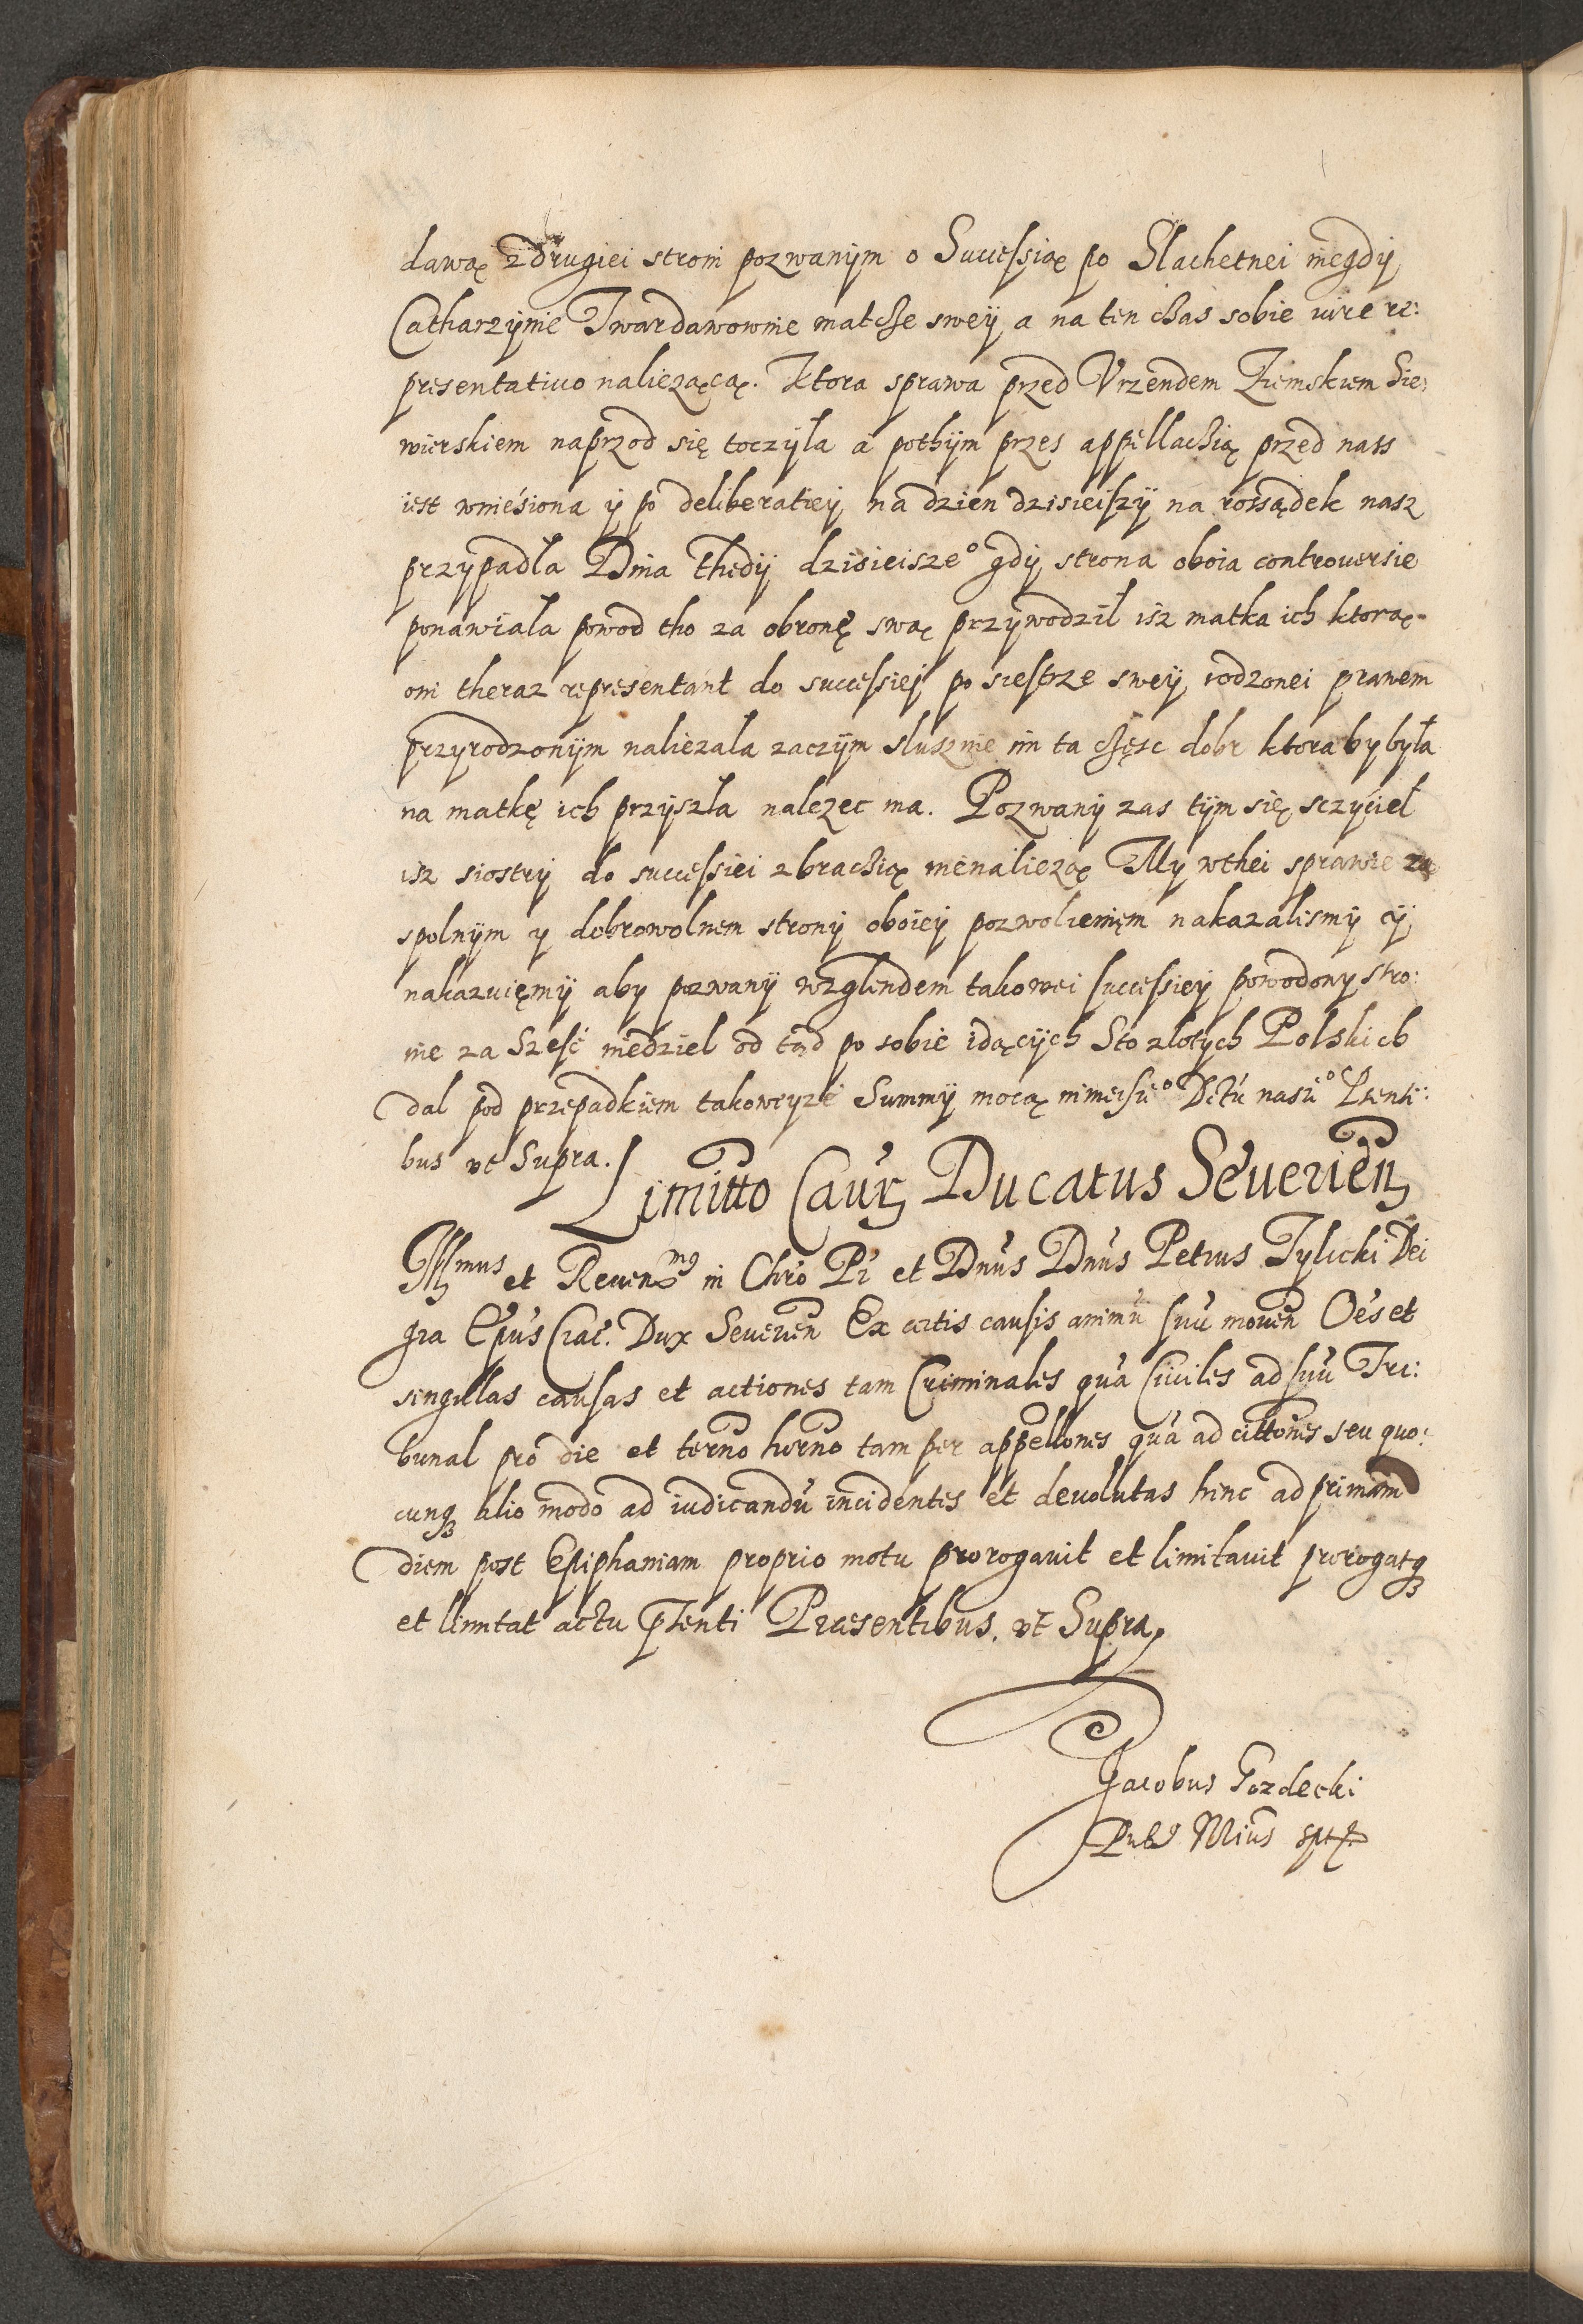 dawą z drugiei stroni pozwanÿm o Successią po Slachetnei niegdÿ
Catharzÿnie Twardawownie matcze sweÿ a na ten czas sobie iure re:
presentatiuo naliezącą. Ktora sprawa przed Vrzendem Ziemskiem Sie:
wierskiem naprzod się toczÿla a pothÿm przes appellacią przed nass
iest wniesiona ÿ po deliberatieÿ na dzien dzisieiszÿ na rossądek nasz
przypadla Dnia thedÿ dzisieisze° gdÿ strona oboia controuersie
ponawiala powod tho za obronę swą przÿwodzil isz matka ich ktorą
oni theraz representant do successieÿ po siestrze sweÿ rodzonei prawem
przyrodzonÿm naliezala zaczÿm slusznie im ta częsc dobr ktora by była
na matkę ich przÿszla nalezec ma. Pozwanÿ zas tÿm się sczÿciel
isz siostrÿ do successiei z bracią nienaliezą My wthei sprawie za
spolnÿm y dobrowolnem stronÿ oboieÿ pozwolieniem nakazalismÿ ÿ
nakazuięmÿ aby pozwanÿ wzglendem takowei successieÿ powodony stro:
nie za Szesć niedziel od tąd po sobie idącÿch Sto zlotych Polskich
dal pod przepadkiem takoweyze Summÿ mocą ninieisze° Dctú nasze° Pnti:
bus vt Supra.
Limitto Caus Ducatus Seuerien
Illmus et Reuenmus in Chro Pr et Dnus Dnus Petrus Tylicki Dei
gra Epus Crac. Dux Seuerien Ex certis causis animu suu mouen Oes et
singulas causas et actiones tam Criminales qua Ciuiles ad suu Tri:
bunal pro die et termo hurno tam per appellones qua ad cittones seu quo:
cunq alio modo ad iudicandu incidentes et deuolutas hinc ad primam
diem post Epiphaniam proprio motu prorogauit et limitauit prorogatq
et limitat actu pnti Praesentibus. vt Supra.
Jacobus Gozdecki
Pub